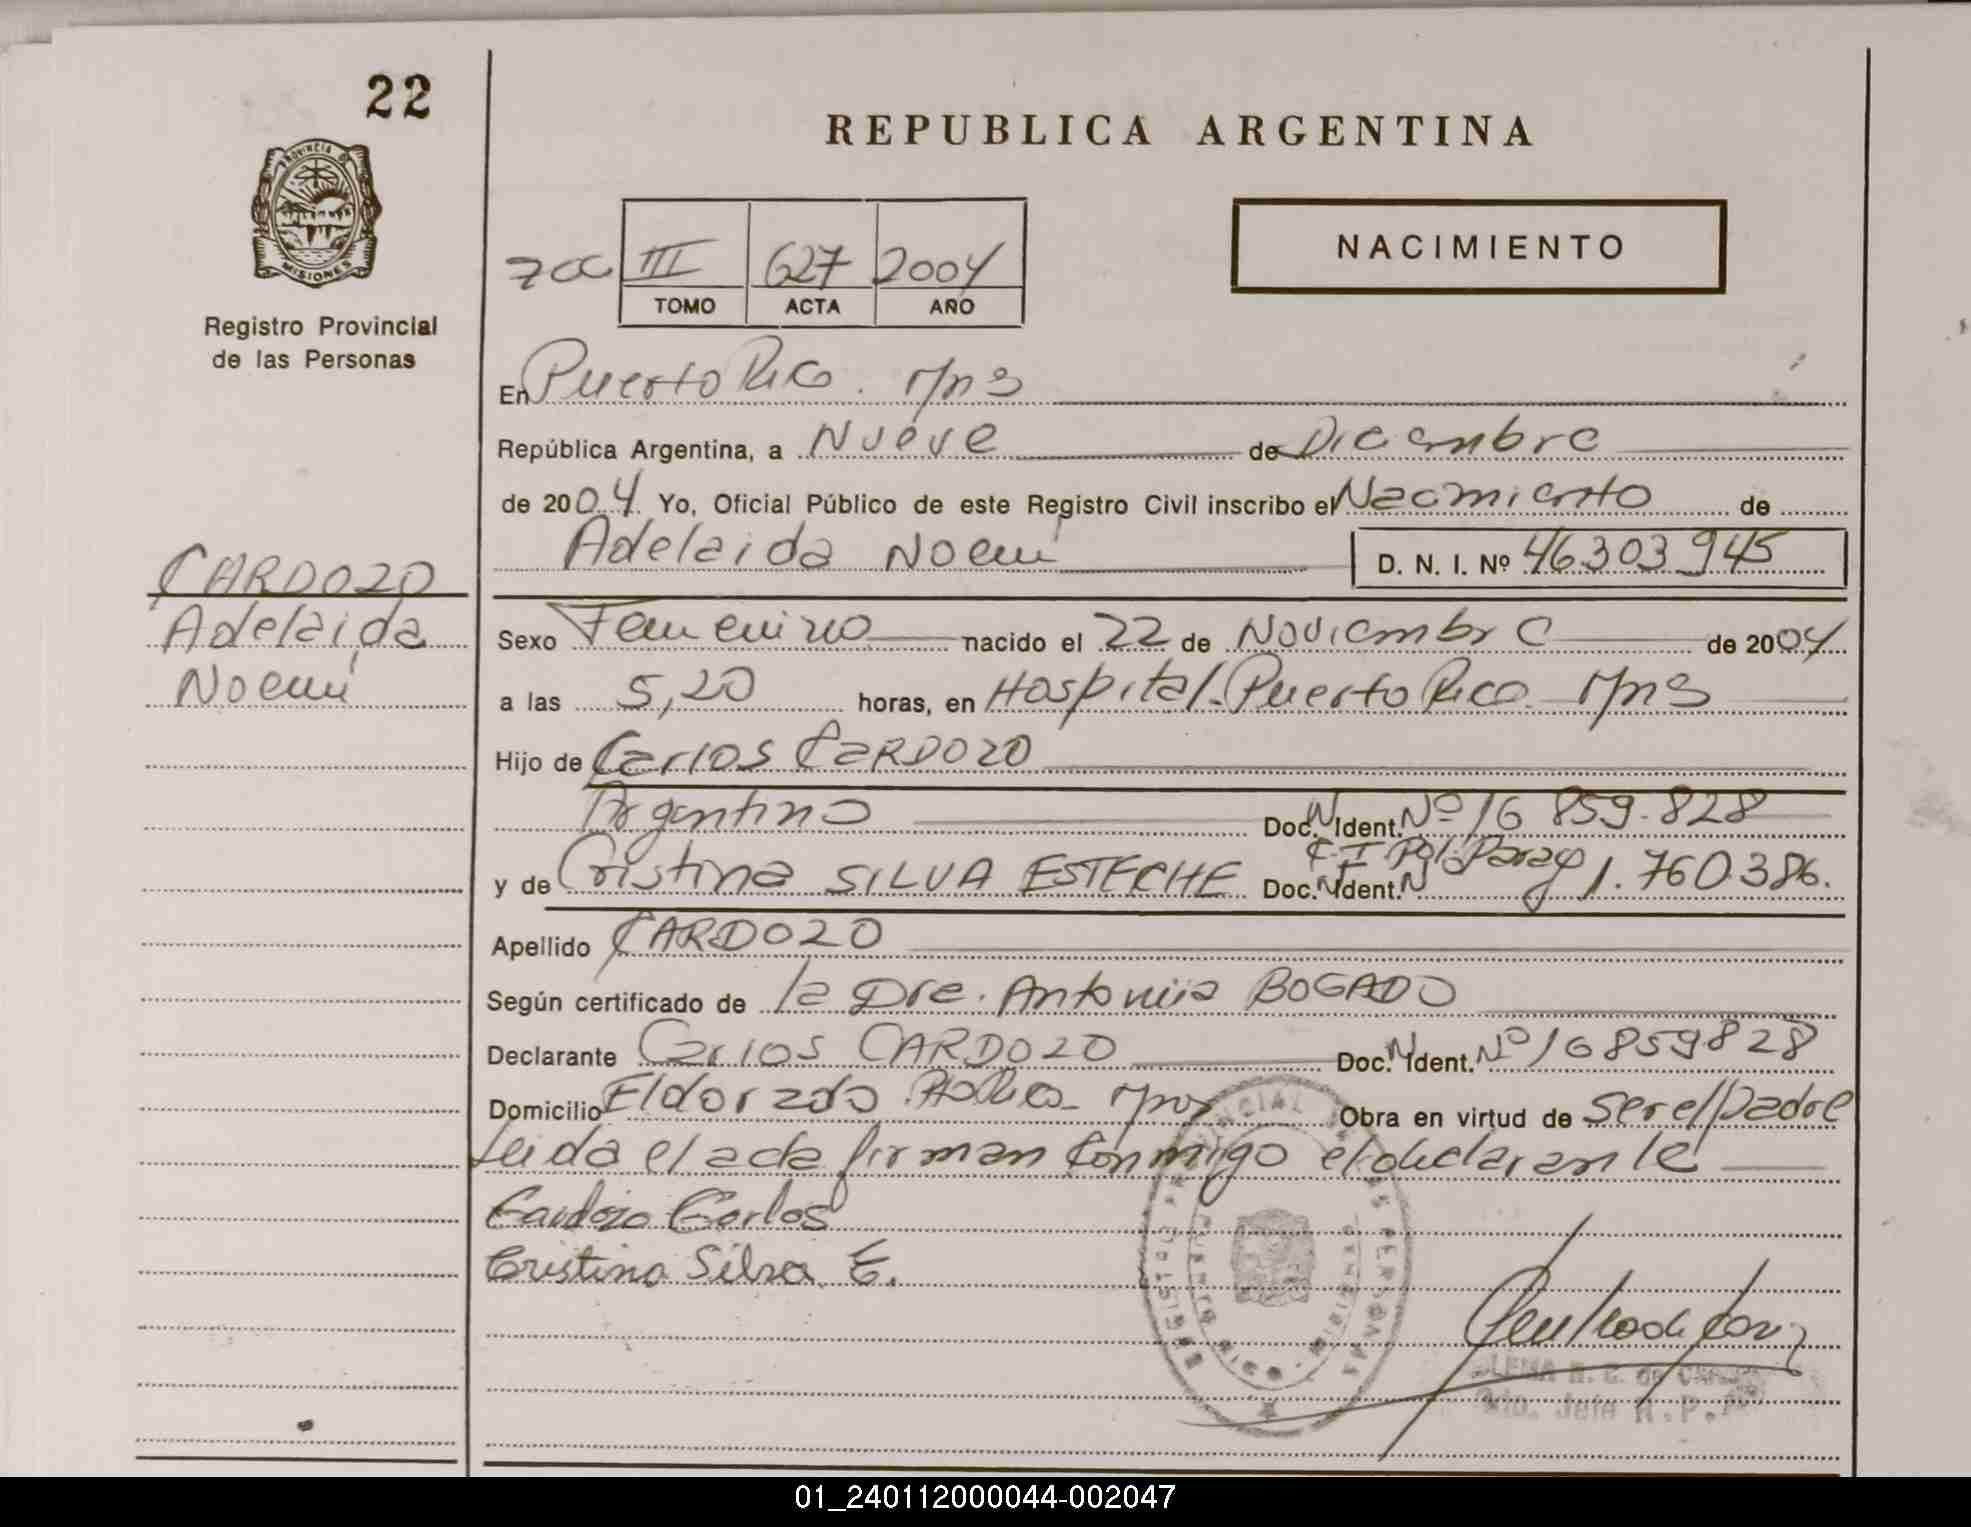 22
REPUBLICA ARGENTINA
PROVINCIA DE
MISIONES
Registro Provincial
de las Personas
III 627 2004
TOMO ACTA AÑO
NACIMIENTO
En Puerto Rico. Mns
República Argentina, a Nueve de Diciembre
de 2004 Yo, Oficial Público de este Registro Civil inscribo el Nacimiento de
Adelaida Noemí D. N. I. Nº 46303945
CARDOZO
Adelaida
Noemí
Sexo Femenino nacido el 22 de Noviembre de 2004
a las 5,20 horas, en Hospital-Puerto Rico Mns
Hijo de Carlos CARDOZO
Argentino Doc. Ident. Nº 16 859.828
y de Cristina SILVA ESTECHE Doc. Ident. N C.I Pol. Paray 1.760.386.
Apellido CARDOZO
Según certificado de la Dra. Antonia BOGADO
Declarante Carlos CARDOZO Doc. Ident. Nº 16859828
Domicilio Eldorado Obra en virtud de ser el padre
Leida el acta firman conmigo el declarante
Cardozo Carlos
Cristina Silva E.
REGISTRO PROVINCIAL DE LAS PERSONAS
PUERTO RICO
R. P.
01_240112000044-002047